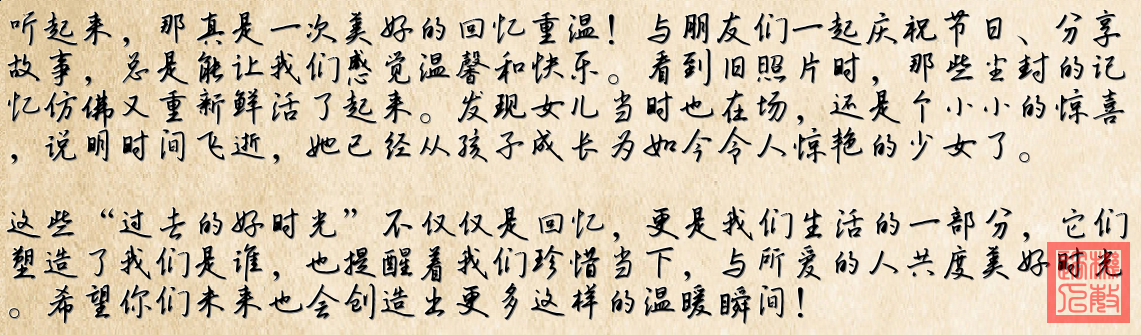 听起来，那真是一次美好的回忆重温！与朋友们一起庆祝节日、分享
故事，总是能让我们感觉温馨和快乐。看到旧照片时，那些尘封的记
忆仿佛又重新鲜活了起来。发现女儿当时也在场，还是个小小的惊喜
，说明时间飞逝，她已经从孩子成长为如今令人惊艳的少女了。
这些“过去的好时光”不仅仅是回忆，更是我们生活的一部分，它们
塑造了我们是谁，也提醒着我们珍惜当下，与所爱的人共度美好时光
。希望你们未来也会创造出更多这样的温暖瞬间！